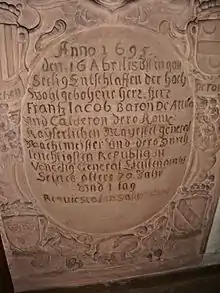 Anno 1695
den 16 Abrilis Ist in gott
Seelig Entschlaffen der hoch
wohlgebohene herz. herz
Frantz Iacob Baron De Attia
und Calderon Dero Röme
Kaÿserlichen Maÿestet general
Wachtmeister und dero Durch
leichtigsten Republiq zu
Venedig General
Seines alters 70 Jahr
und 1 tag
Requiescat in